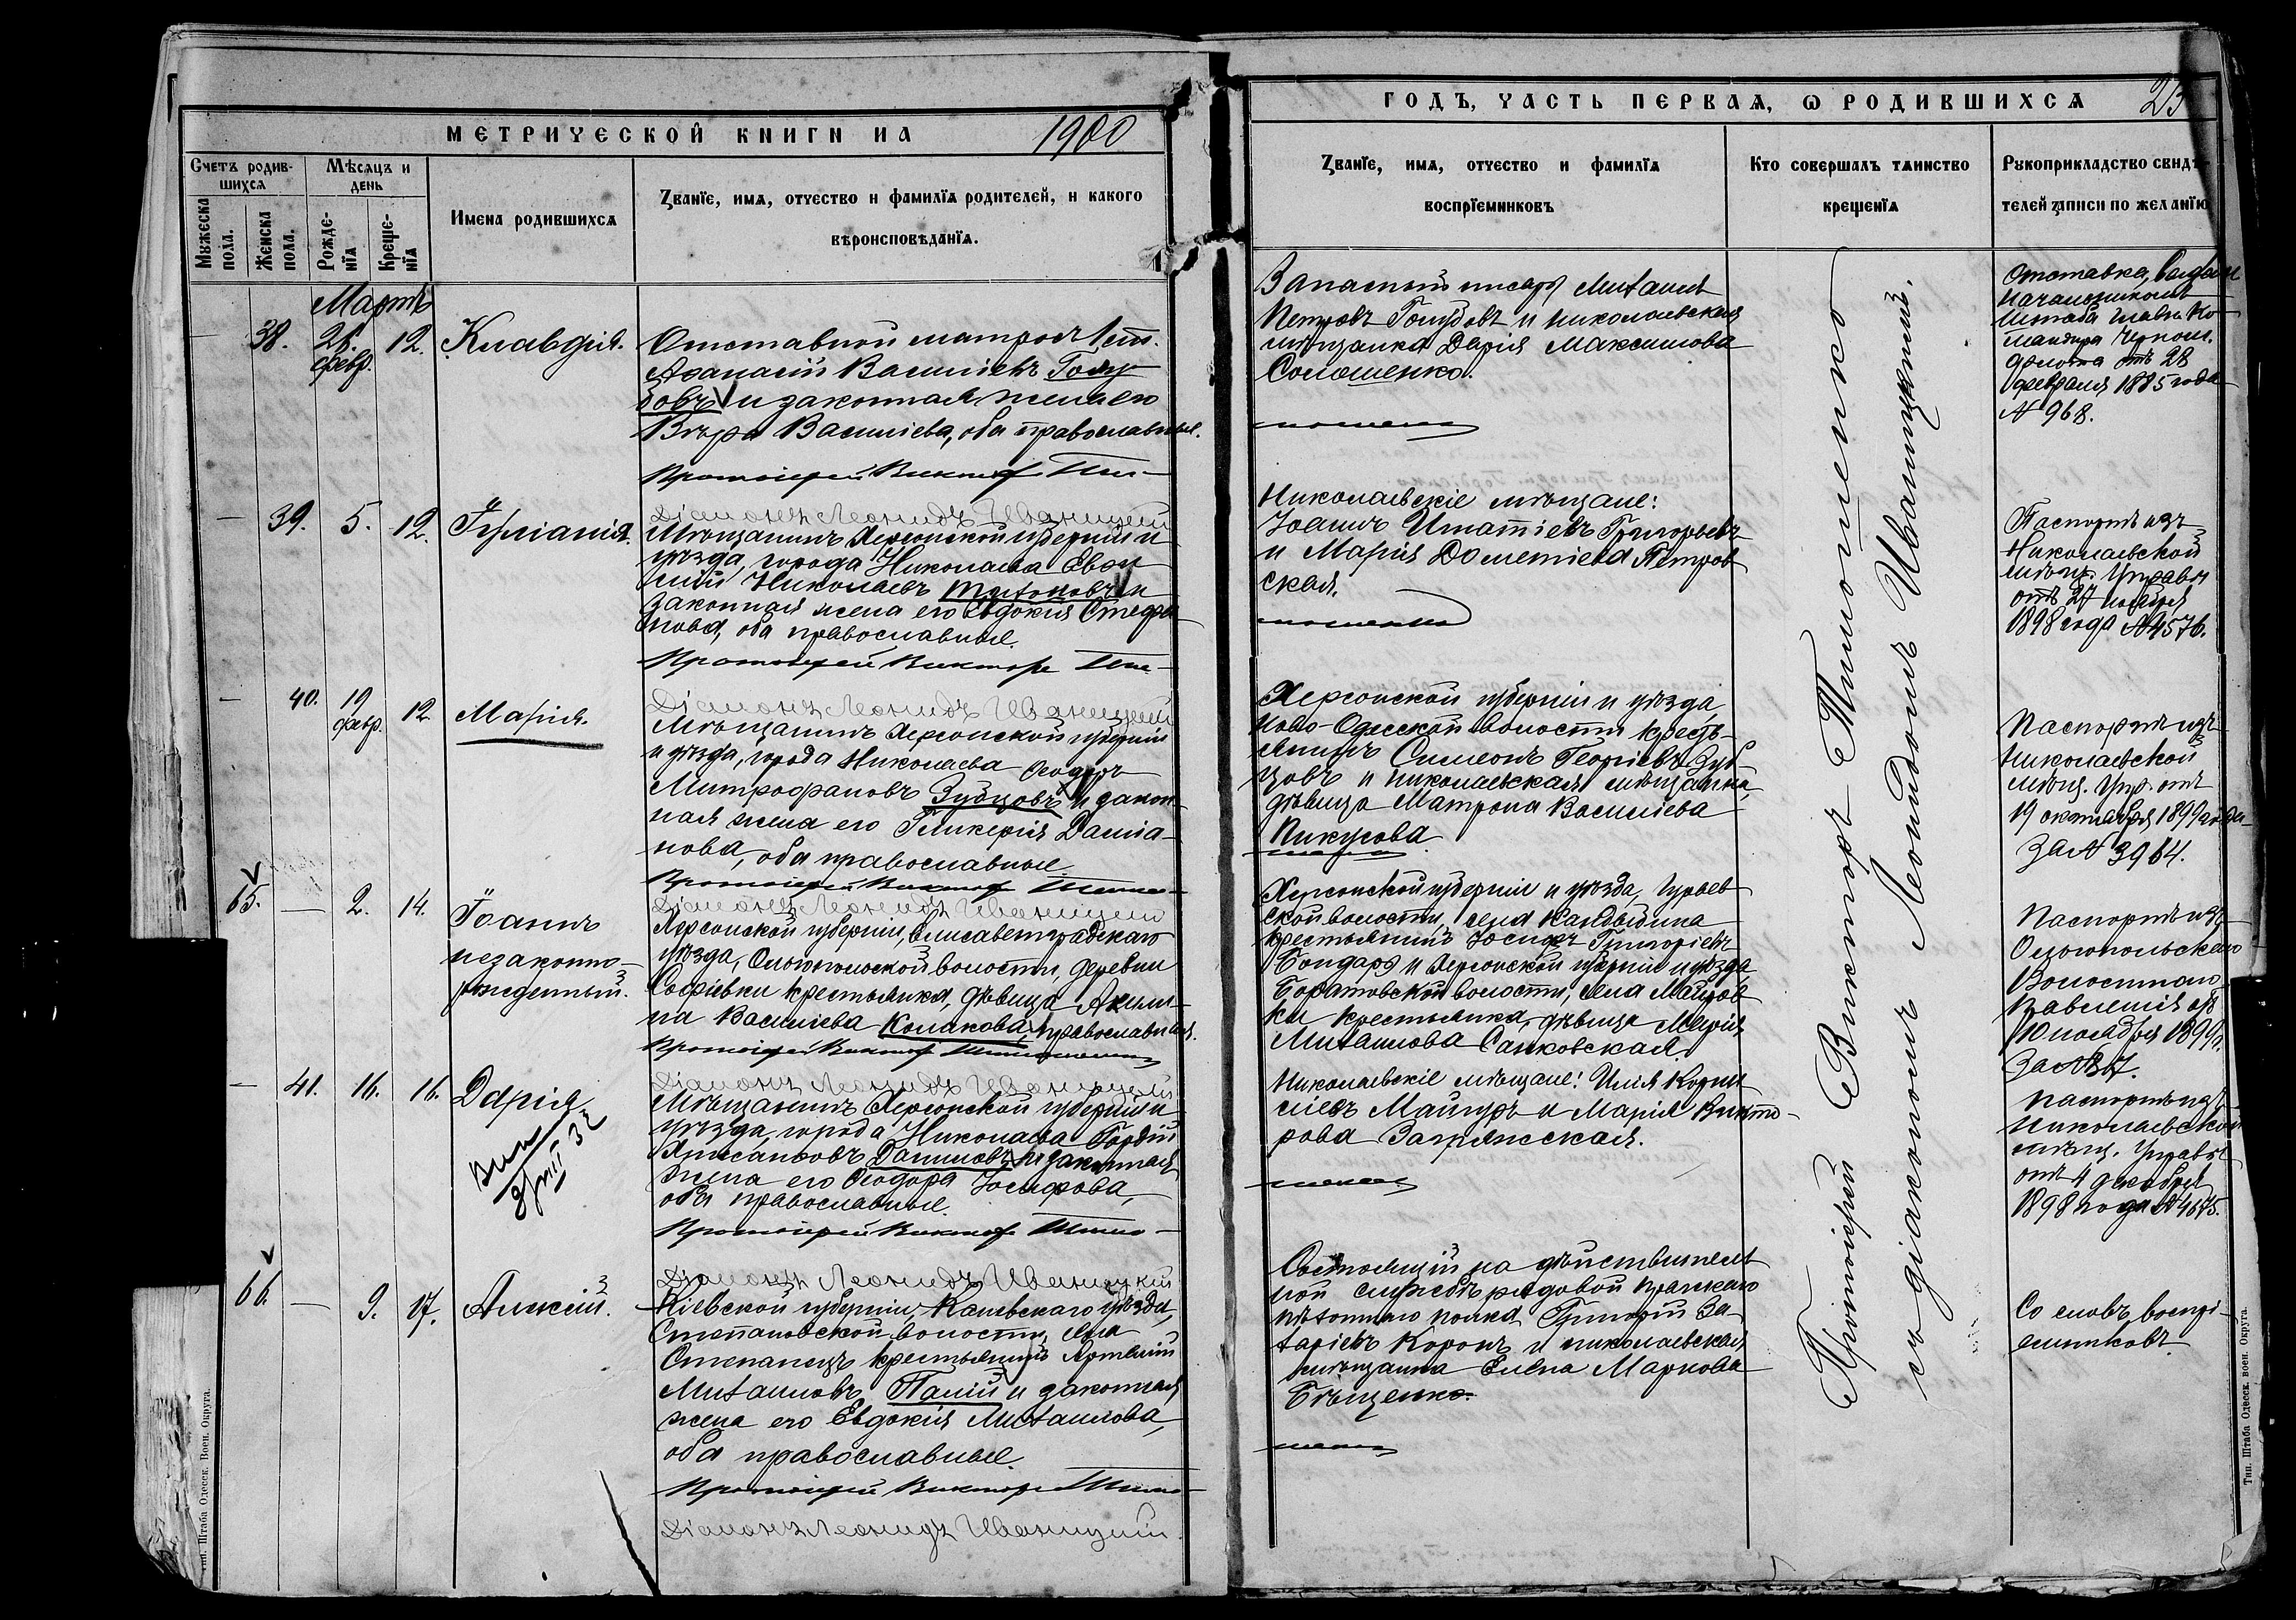 МЕТРИЧЕСКОЙ КНИГИ НА 1900
Счетъ родив-
шихся
Мѣсяцъ и
день
Мужеска
пола.
Женска
пола.
Рожде-
нїя
Креще-
нїя
Имена родившихся
Званїе, имя, отчество и фамилїя родителей, и какого
вѣроисповѣданїя.
Мартъ
38. 28. февр. 12. Клавдія.
Отставной матросъ 1 ст.
Аѳанасій Василіевъ Голу
бовъ и законная жена его
Вѣра Василіева, оба православные.
Протоіерей Викторъ Тим-
Діаконъ Леонидъ Иваницкій
39. 5. 12. Іуліанія.
Мѣщанинъ Херсонской губерніи и
уѣзда, города Николаева Евѳи
мій Николаевъ Тихоновъ и
законная жена его Евдокія Стефа
нова, оба православные.
Протоіерей Викторъ Тим-
Діаконъ Леонидъ Иваницкій
40. 19 февр. 12. Марія.
Мѣщанинъ Херсонской губерніи
и уѣзда, города Николаева Ѳеодоръ
Митрофановъ Зубцовъ и закон-
ная жена его Гликерія Даміа-
нова, оба православные.
Протоіерей Викторъ Тимо-
Діаконъ Леонидъ Иваницкій
65. 2. 14. Іоаннъ
незаконно-
рожденный.
Херсонской губерніи, Елисаветградскаго
уѣзда, Ольгопольской волости, деревни
Софіевки крестьянка, дѣвица Акили-
на Василіева Колакова, православная.
Протоіерей Викторъ Тимошенко
Діаконъ Леонидъ Иваницкій
41. 16. 16. Дарія
Мѣщанинъ Херсонской губерніи и
уѣзда, города Николаева Гордій
Даниловъ и законная
жена его Ѳеодора Іосифова,
оба православные.
Протоіерей Викторъ Тимо-
Діаконъ Леонидъ Иваницкій
66. 9. 17. Алексій.
Кіевской губерніи, Каневскаго уѣзда,
Степановской волости, села
Степанецъ крестьянинъ Артемій
Михаиловъ Палій и законная
жена его Евдокія Михаилова,
оба православные.
Протоіерей Викторъ Тимо-
Діаконъ Леонидъ Иваницкій.
Тип. Штаба Одесск. Воен. Округа.
ГОДЪ, ЧАСТЬ ПЕРВАЯ, Ѡ РОДИВШИХСЯ
Званїе, имя, отчество и фамилїя
воспрїемниковъ
Кто совершалъ таинство
крещенїя
Рукоприкладство свидѣ-
телей записи по желанїю
Запасный писарь Михаилъ
Петровъ Голубовъ и николаевская
мѣщанка Дарія Максимова
Соломенко.
Отставка, выдан
начальникомъ
штаба главн. Ко
мандира Черном.
флота отъ 28
февраля 1885 года
№ 968.
Николаевскіе мѣщане:
Іоаннъ Игнатіевъ Григорьевъ
и Марія Дометіева Петров
ская.
Паспортъ изъ
Николаевской
мѣщ. Управы
отъ 27 ноября
1898 года №4576.
Херсонской губерніи и уѣзда,
Ново-Одесской волости кресть-
янинъ Симеонъ Георгіевъ Зуб-
цовъ и николаевская мѣщанка,
дѣвица Матрона Василіева
Пикулова.
Паспортъ изъ
Николаевской
мѣщ. Упр. отъ
19 октября 1899 года
за № 3964.
Херсонской губерніи и уѣзда, Гурьев
ской волости, села Кандыбина
крестьянинъ Іосифъ Григоріевъ
Бондарь и Херсонской губерніи и уѣзда
волости, села
крестьянка, дѣвица Марія
Михаилова Санковская.
Паспортъ изъ
Ольгопольскаго
Волостного
Правленія отъ
10 ноября 1899 г.
за №
Николаевскіе мѣщане: Илія Корни
ліевъ Майгуръ и Марія Викто-
рова Загряжская.
Паспортъ изъ
Николаевской
мѣщ. Управы
отъ 4 декабря
1898 года № 4675.
Состоящій на дѣйствитель
ной службѣ рядовой Пражскаго
пѣхотнаго полка Григорій За
харіевъ Коронъ и николаевская
мѣщанка Елена Маркова
Бѣщенко.
Со словъ воспрі-
емниковъ.
Протоіерей Викторъ Тимошенко
съ діакономъ Леонидомъ Иваницкимъ.
Тип. Штаба Одесск. воен. Округа.